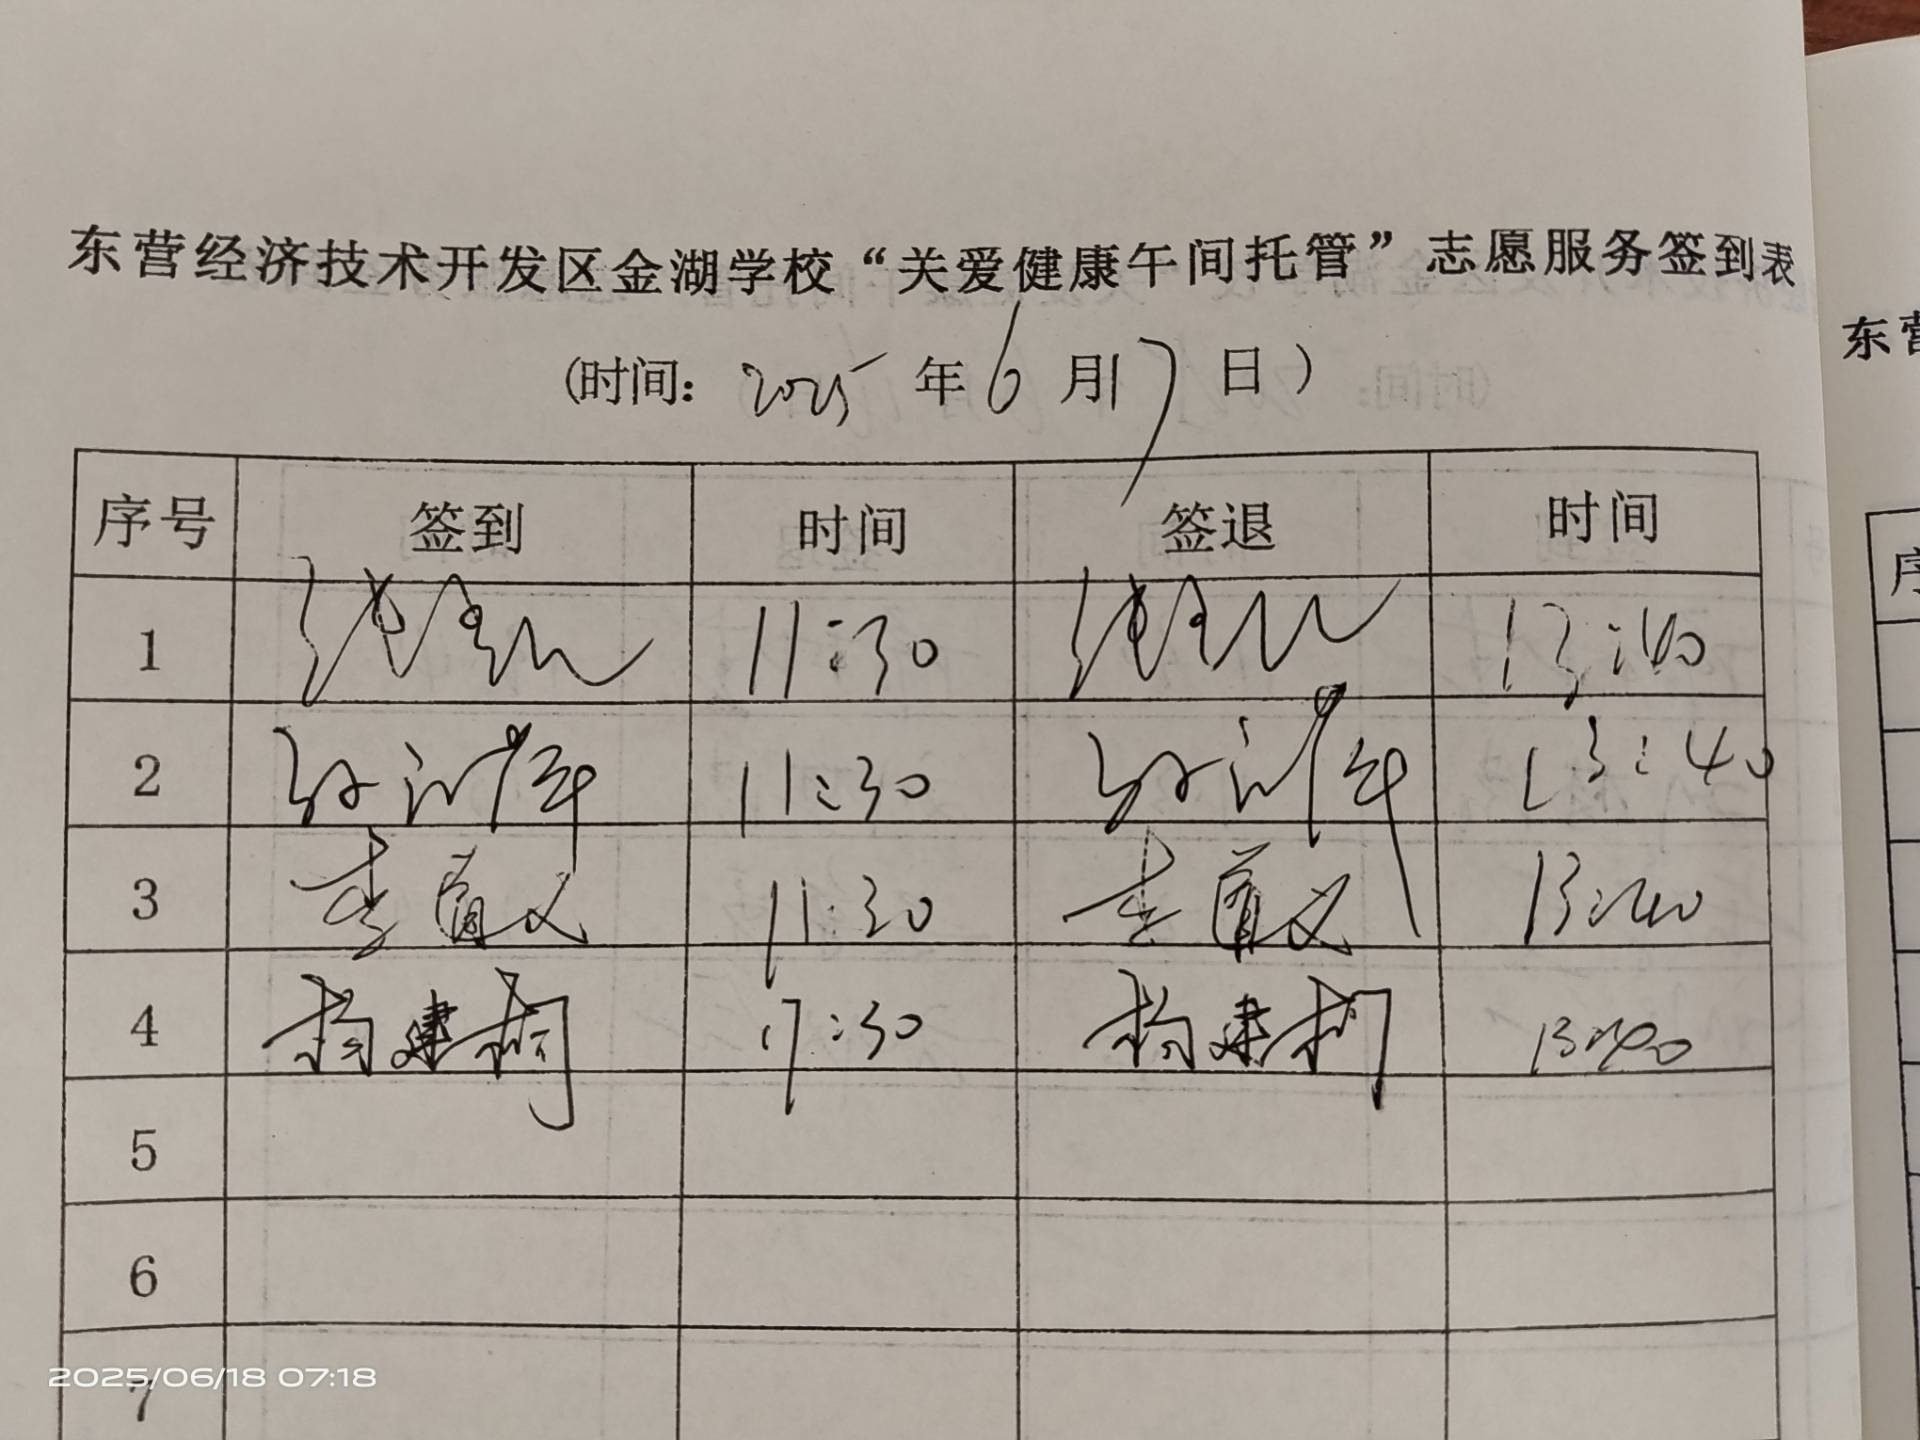 东营经济技术开发区金湖学校“关爱健康午间托管”志愿服务签到表
(时间: 2025 年 6 月 17 日)
序号 签到 时间 签退 时间
1 11:30 13:40
2 11:30 13:40
3 11:30 13:40
4 杨建 11:30 杨建 13:40
5
6
7
2025/06/18 07:18
东营
序